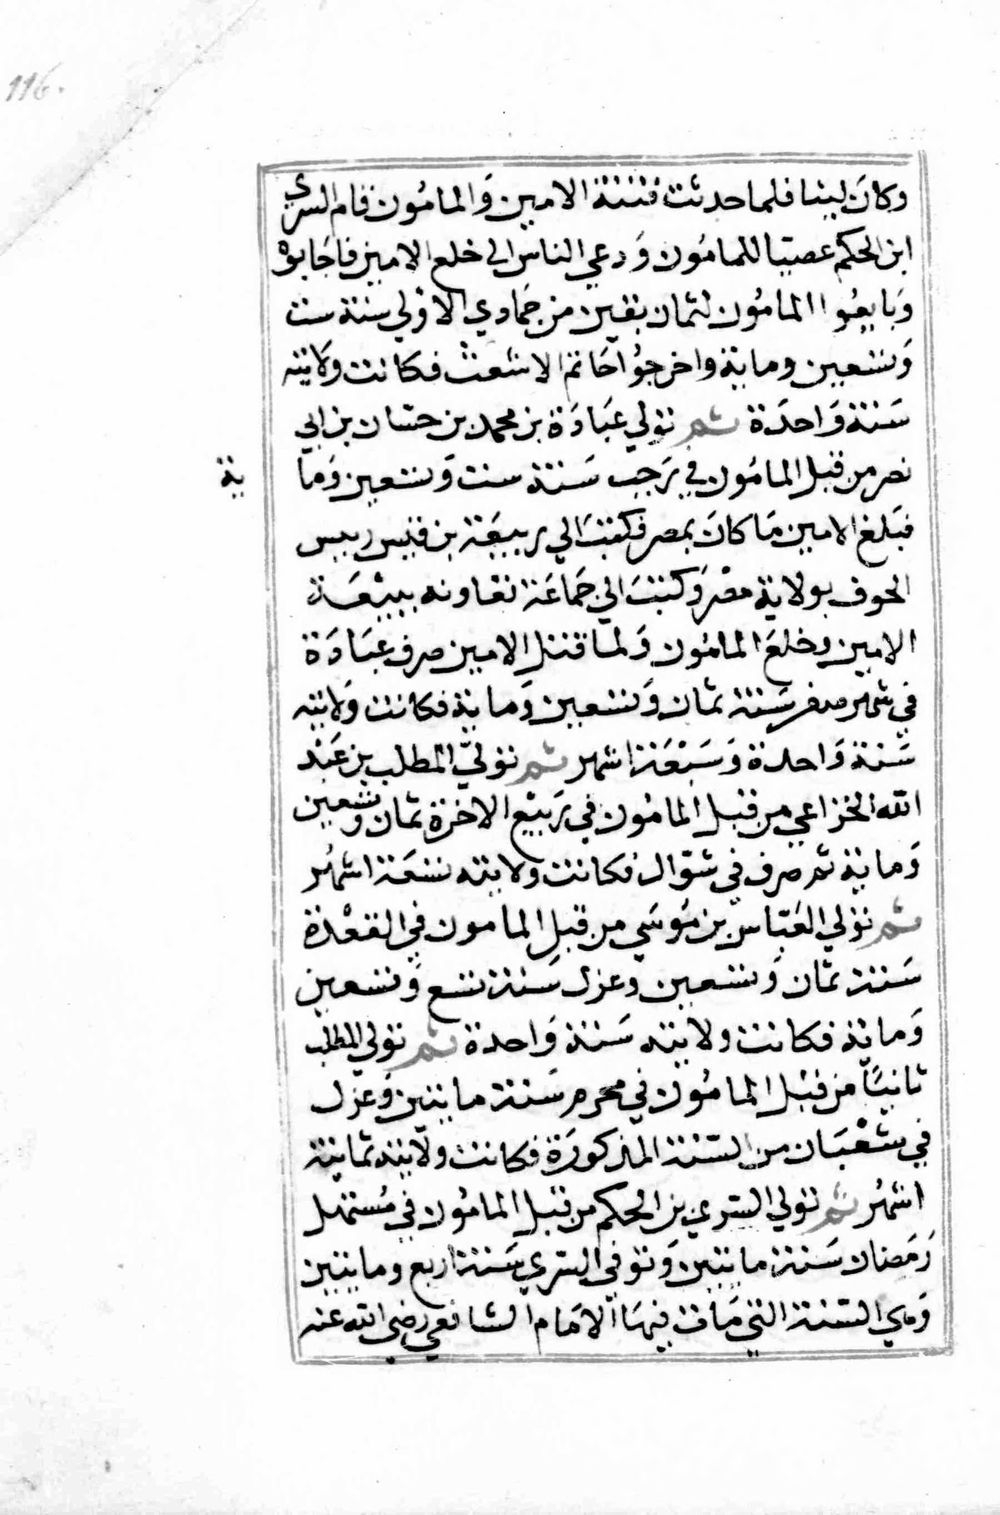 116.
وكان لينا فلما حدثت فتنة الامين والمامون قام السري
ابن الحكم عصبتا للمامون ودعي الناس الى خلع الامين فاجابوه
وبايعوا المامون لثمان بقين من جمادي الاولي سنة ست
وتسعين وماية واخرجوا حاتم الاشعث فكانت ولايته
سنة واحدة ثم تولي عبادة بن محمد بن حسان بن ابي
نصر من قبل المامون في رجب سنة ست وتسعين وما
ية
فبلغ الامين ما كان بمصر فكتب الي ربيعة بن قيس رييس
الحوف بولاية مصر وكتب الي جماعة تعاونه ببيعة
الامين وخلع المامون ولما قتل الامين صرف عبادة
في شهر صفر سنة ثمان وتسعين وماية فكانت ولايته
سنة واحدة وسبعة اشهر ثم تولي المطلب بن عبد
الله الخزاعي من قبل المامون في ربيع الاخرة ثمان وتسعين
وماية ثم صرف في شوال فكانت ولايته تسعة اشهر
ثم تولي العباس بن موسي من قبل المامون في القعدة
سنة ثمان وتسعين وعزل سنة تسع وتسعين
وماية فكانت ولايته سنة واحدة ثم تولي المطلب
ثانيا من قبل المامون في محرم سنة مايتين وعزل
في شعبان من السنة المذكورة فكانت ولايته ثمانية
اشهر ثم تولي السري بن الحكم من قبل المامون في مستهل
رمضان سنة مايتين وتوفي السري سنة اربع ومايتين
وهي السنة التي مات فيها الامام الشافعي رضي الله عنه